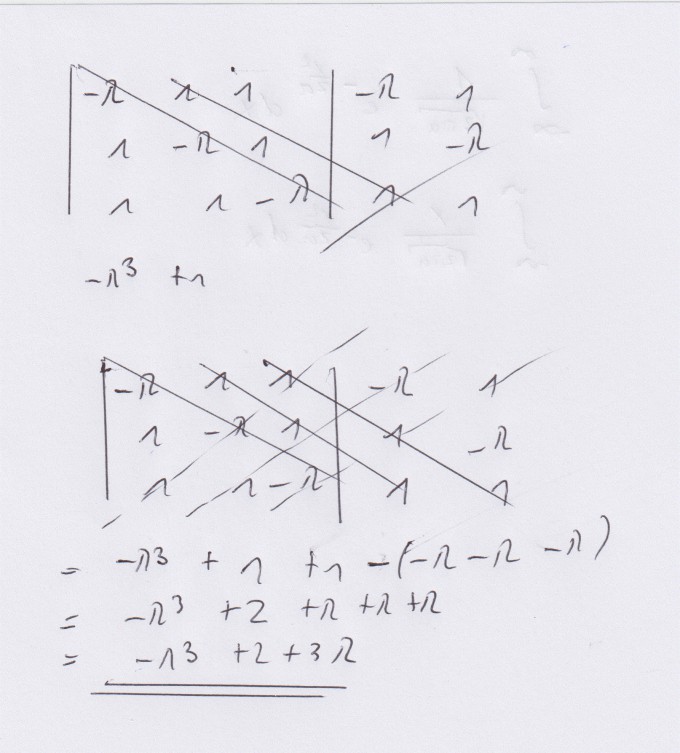 -λ 1 1 | -λ 1
1 -λ 1 | 1 -λ
1 1 -λ | 1 1
-λ³ +1
-λ 1 1 | -λ 1
1 -λ 1 | 1 -λ
1 1 -λ | 1 1
= -λ³ + 1 +1 -(-λ -λ -λ)
= -λ³ +2 +λ +λ +λ
= -λ³ +2 +3λ